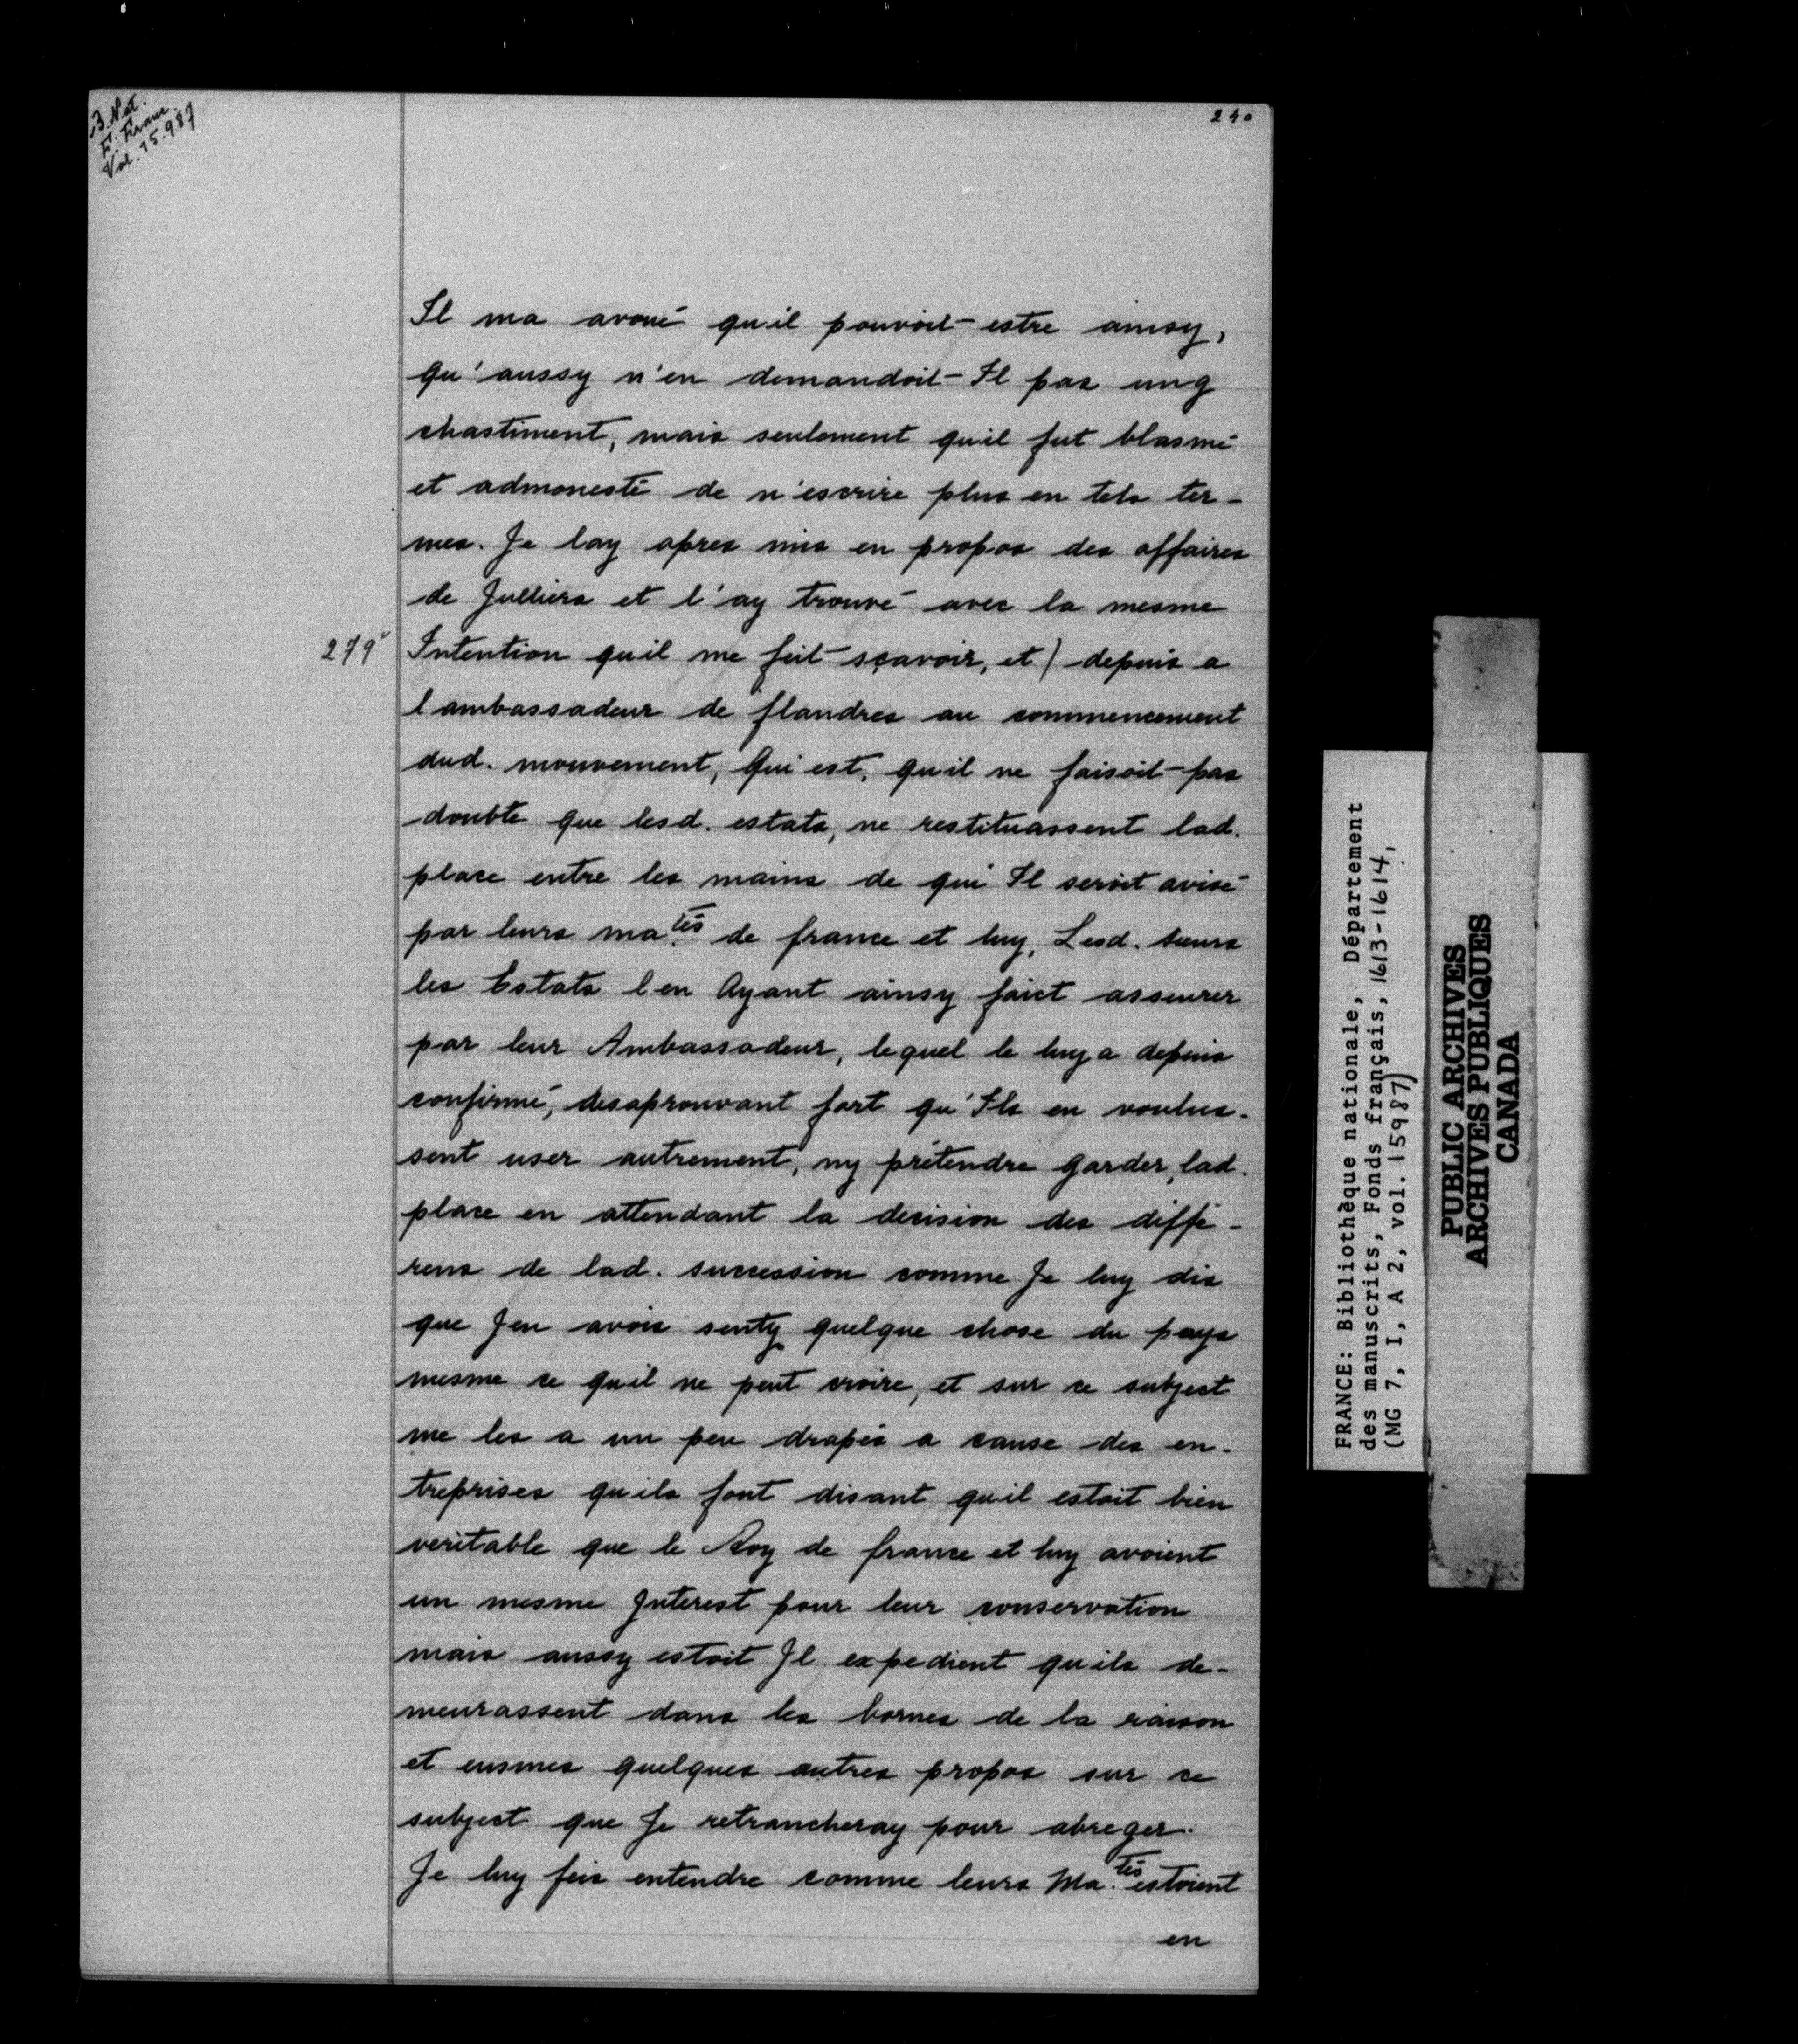 B. Nat.
F. Franc.
Vol. 15.987
240
Il ma avoué qu'il pouvoit estre ainsy,
qu'aussy n'en demandoit Il pas ung
chastiment, mais seulement quil fut blasmé
et admonesté de n'escrire plus en tels ter-
mes. Je lay apres mis en propos des affaires
de Julliers et l'ay trouvé avec la mesme
279v Intention quil me feit sçavoir, et) depuis a
lambassadeur de flandres au commencement
dud. mouvement, Qui est, quil ne faisoit pas
doubte que lesd. estats, ne restituassent lad.
place entre les mains de qui Il seroit avisé
par leurs ma.tés de france et luy, Lesd. sieurs
les Estats l en Ayant ainsy faict asseurer
par leur Ambassadeur, lequel le luy a depuis
confirmé, desaprouvant fort qu'Ils en voulus-
sent user autrement, ny prétendre garder, lad.
place en attendant la decision des diffé-
rens de lad. succession comme Je luy dis
que Jen avois senty quelque chose du pays
mesme ce quil ne peut croire, et sur ce subject
me les a un peu drapés a cause des en-
treprises quils font disant quil estoit bien
veritable que le Roy de france et luy avoient
un mesme Jnterest pour leur conservation
mais aussy estoit Jl expedient quils de-
meurassent dans les bornes de la raison
et eusmes quelques autres propos sur ce
subject que Je retrancheray pour abreger.
Je luy feis entendre comme leurs Ma.tés estoient
en
FRANCE: Bibliothèque nationale, Département
des manuscrits, Fonds français, 1613-1614,
(MG 7, I, A 2, vol. 15987)
PUBLIC ARCHIVES
ARCHIVES PUBLIQUES
CANADA